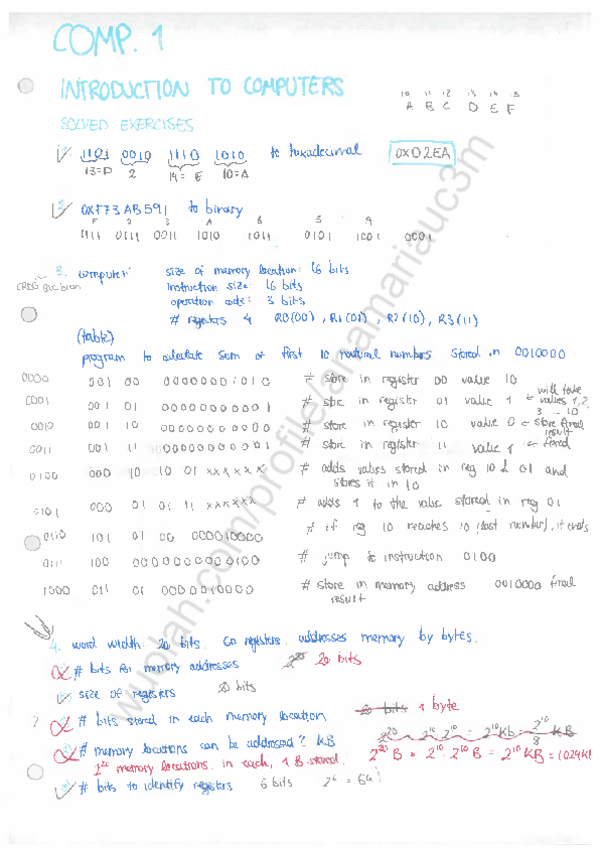 COMP. 1
INTRODUCTION TO COMPUTERS
10 11 12 13 14 15
A B C D E F
SOLVED EXERCISES
1. 1101 0010 1110 1010 to hexadecimal 0XD2EA
13=D 2 14=E 10=A
2. 0XF73AB591 to binary
F 7 3 A B 5 9 1
1111 0111 0011 1010 1011 0101 1001 0001
3. computer: size of memory location: 16 bits
instruction size: 16 bits
operation code: 3 bits
# registers 4 R0(00), R1(01), R2(10), R3(11)
(table)
program to calculate sum of first 10 natural numbers stored in 0010000
0000 001 00 00000001010 # store in register 00 value 10
0001 001 01 00000000001 # store in register 01 value 1 ← will take values 1,2, 3 ... 10
0010 001 10 00000000000 # store in register 10 value 0 ← store final result
0011 001 11 00000000001 # store in register 11 value 1 ← fixed
0100 000 10 10 01 xxxxxxx # adds values stored in reg 10 & 01 and
stores it in 10
0101 000 01 01 11 xxxxxxx # adds 1 to the value stored in reg 01
0110 101 01 00 000010000 # if reg 10 reaches 10 (last number), it ends
0111 100 0000000000100 # jump to instruction 0100
1000 011 01 00000010000 # store in memory address 0010000 final
result
4. word width 20 bits. 60 registers. addresses memory by bytes.
a) # bits for memory addresses 2²⁰ 20 bits
b) size of registers 20 bits
? c) # bits stored in each memory location 20 bits 1 byte
d) # memory locations can be addressed? KB 2²⁰ B = 2¹⁰ · 2¹⁰ B = 2¹⁰ KB = 1024KB
2²⁰ memory locations. in each, 1 B stored.
e) # bits to identify registers 6 bits 2⁶ = 64
wuolah.com/profile/anamariauc3m